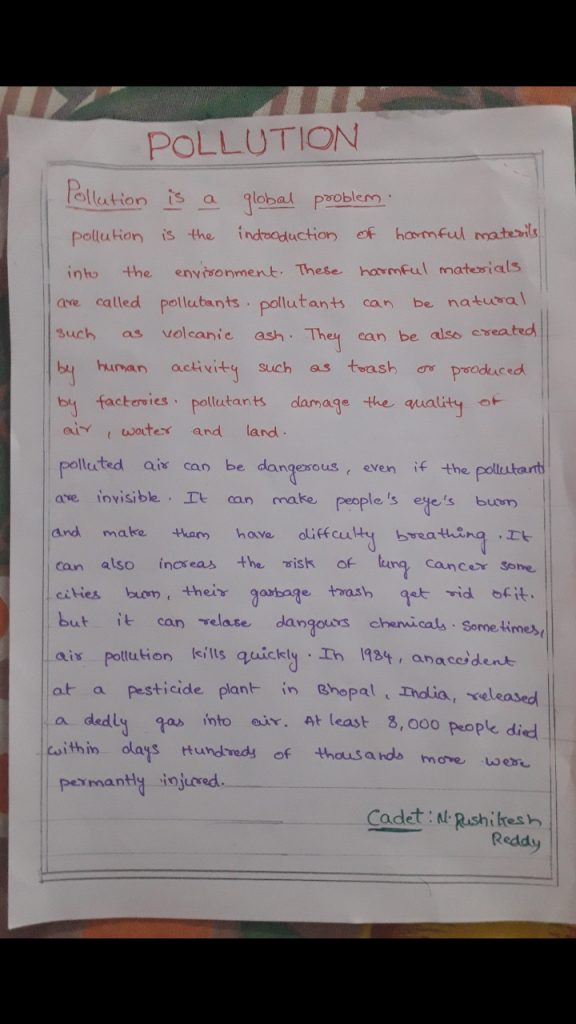 POLLUTION
Pollution is a global problem.
pollution is the indroduction of harmful materils
into the environment. These harmful materials
are called pollutants. pollutants can be natural
such as volcanic ash. They can be also created
by human activity such as trash or produced
by factories. pollutants damage the quality of
air, water and land.
polluted air can be dangerous, even if the pollutants
are invisible. It can make people's eye's burn
and make them have diffculty breathing. It
can also increas the risk of lung cancer some
cities burn, their garbage trash get rid of it.
but it can relase dangours chemicals. sometimes,
air pollution kills quickly. In 1984, anaccident
at a pesticide plant in Bhopal, India, released
a dedly gas into air. At least 8,000 people died
within days Hundreds of thousands more were
permantly injured.
Cadet: N. Rushikesh
Reddy